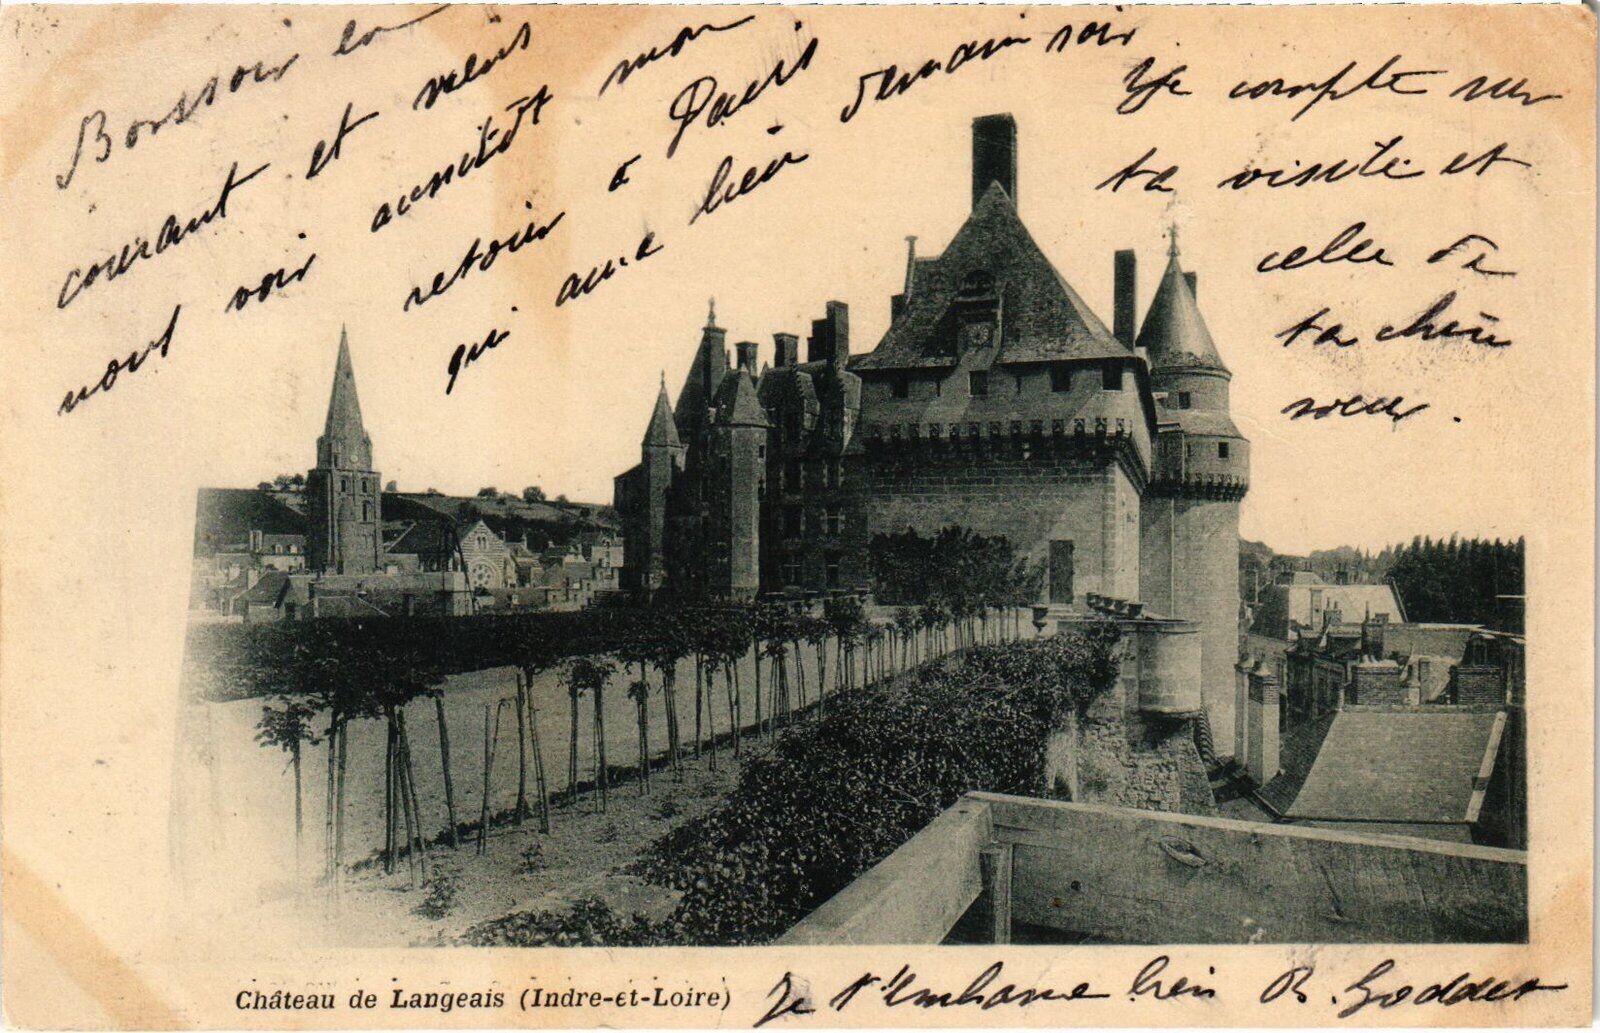 Bonsoir en
courant et viens
nous voir aussitôt mon
retour à Paris
qui aura lieu demain soir
Je compte sur
ta visite et
celle de
ta chère
sœur.
Château de Langeais (Indre-et-Loire)
Je t'embrasse bien R.